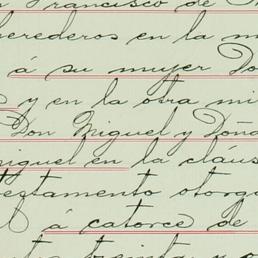 Francisco de
herederos en la m
á su mujer Do
y en la otra mi
Don Miguel y Doña
iguel en la cláus
estamento otorg
á catorce de
treinta y